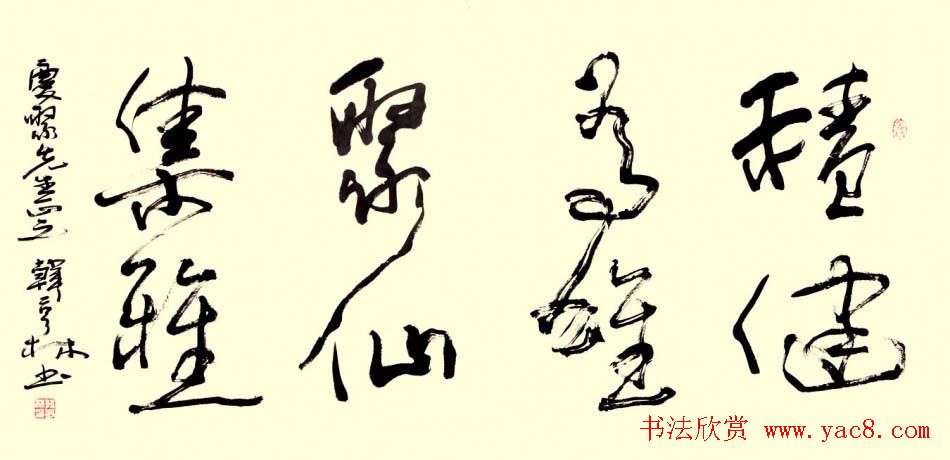 積健
為雄
聚仙
集雅
慶聚先生正之 韓亨林书
书法欣赏 www.yac8.com